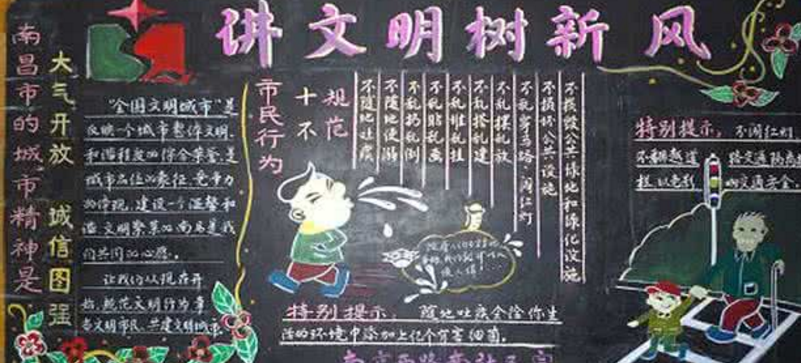 讲文明树新风
南昌市的城市精神是
大气开放 诚信图强
"全国文明城市"是
反映一个城市整体文明、
和谐程度的综合荣誉,是
城市品位的象征,竞争力
的体现,建设一个温馨和
谐文明繁荣的南昌是我
们共同的心愿。
让我们从现在开
始,规范文明行为,争
当文明市民,共建文明城市
市民行为
十不
规范
不随地吐痰
不随地便溺
不乱扔乱倒
不乱贴乱画
不乱堆乱挂
不乱搭乱建
不乱摆乱放
不乱穿马路、闯红灯
不损坏公共设施
不损毁公共绿地和绿化设施
特别提示: 随地吐痰会给你生
活的环境中添加上亿个有害细菌。
特别提示: 不闯红灯,
不翻越道 路交通隔离
栏,以免影 响交通安全。